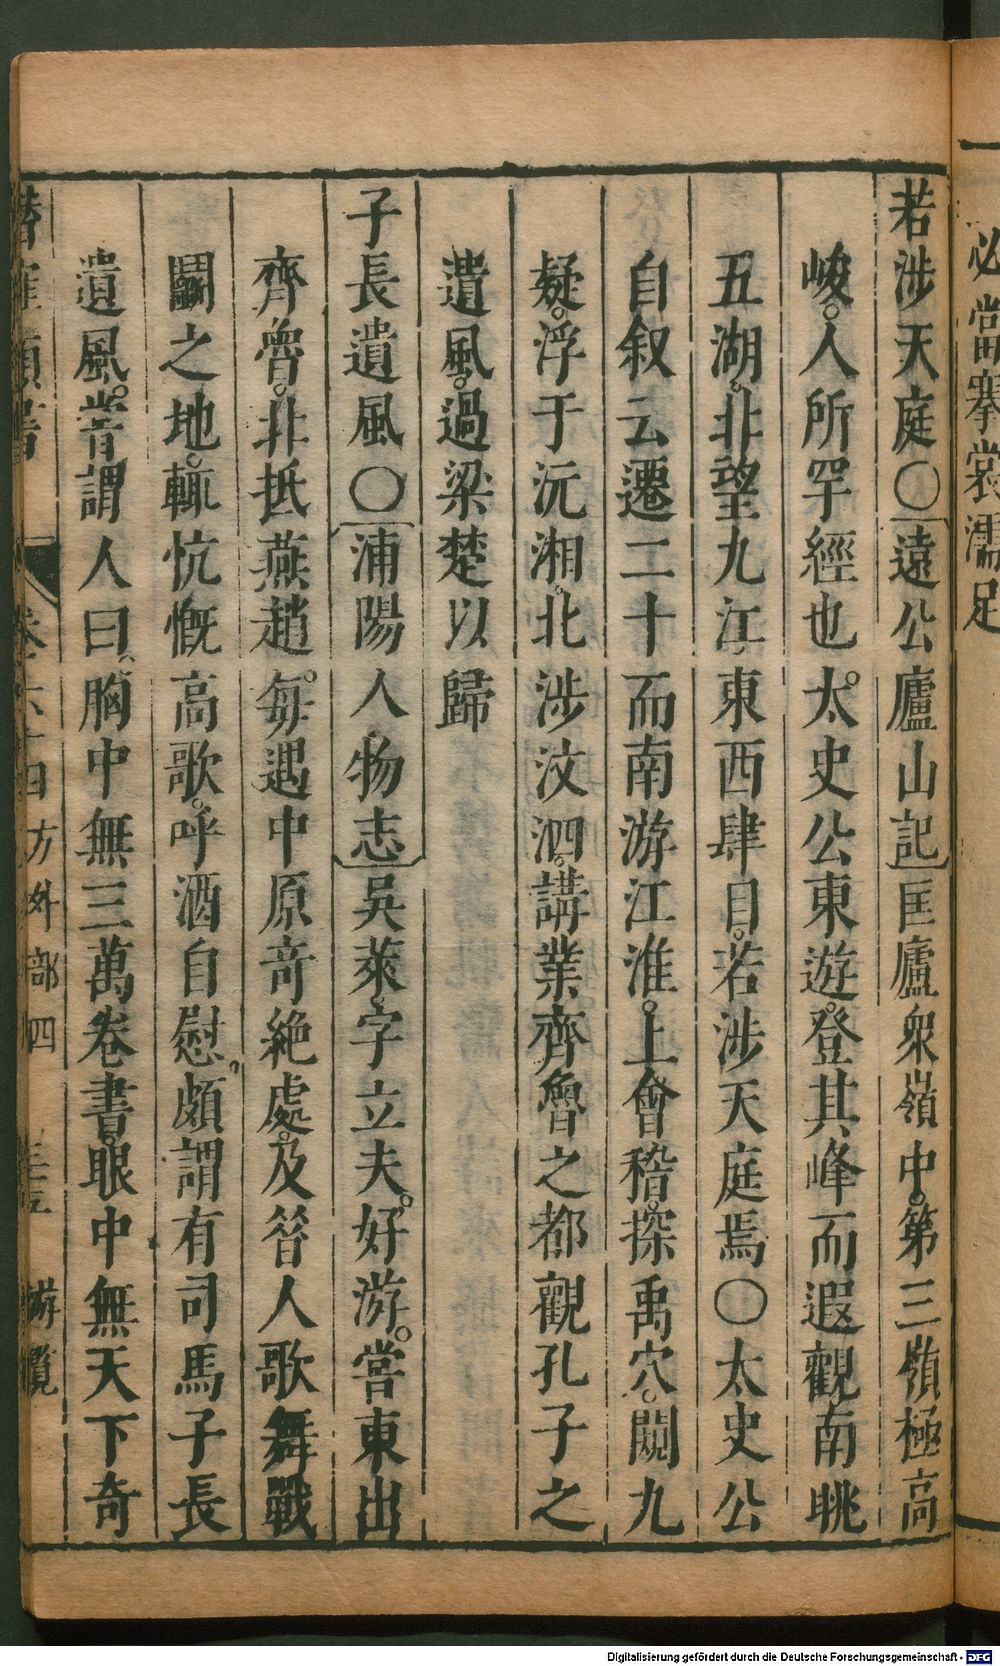 必當搴裳濡足
若涉天庭〇〔遠公廬山記〕匡廬衆嶺中。第三嶺極高
峻。人所罕經也。太史公東遊。登其峰而遐觀南眺
五湖。北望九江東西肆目。若涉天庭焉〇太史公
自叙云遷二十而南游江淮。上會稽。探禹穴。闚九
疑。浮于沅湘。北涉汶泗。講業齊魯之都觀孔子之
遺風。過梁楚以歸
子長遺風〇〔浦陽人物志〕吳萊。字立夫。好游。嘗東出
齊魯。北抵燕趙。每遇中原竒絶處。及昝人歌舞戰
鬬之地。輒忼慨高歌。呼酒自慰。頗謂有司馬子長
遺風。甞謂人曰。胸中無三萬卷書。眼中無天下奇
類書 卷 四 方外部四 游覽
Digitalisierung gefördert durch die Deutsche Forschungsgemeinschaft - DFG